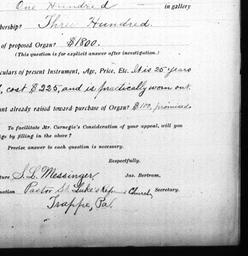 One Hundred in gallery
bership? Three Hundred.
of proposed Organ? $1800.
(This question is for explicit answer after investigation.)
culars of present Instrument, Age, Price, Etc. It is 25 years
cost $225, and is practically worn out.
nt already raised toward purchase of Organ? $100, promised
To facilitate Mr. Carnegie's Consideration of your appeal, will you
ge by filling in the above?
Precise answer to each question is necessary.
Respectfully,
ture S. L. Messinger, Jas. Bertram,
Pastor St. Luke's Ref. Church, Secretary.
Trappe, Pa.